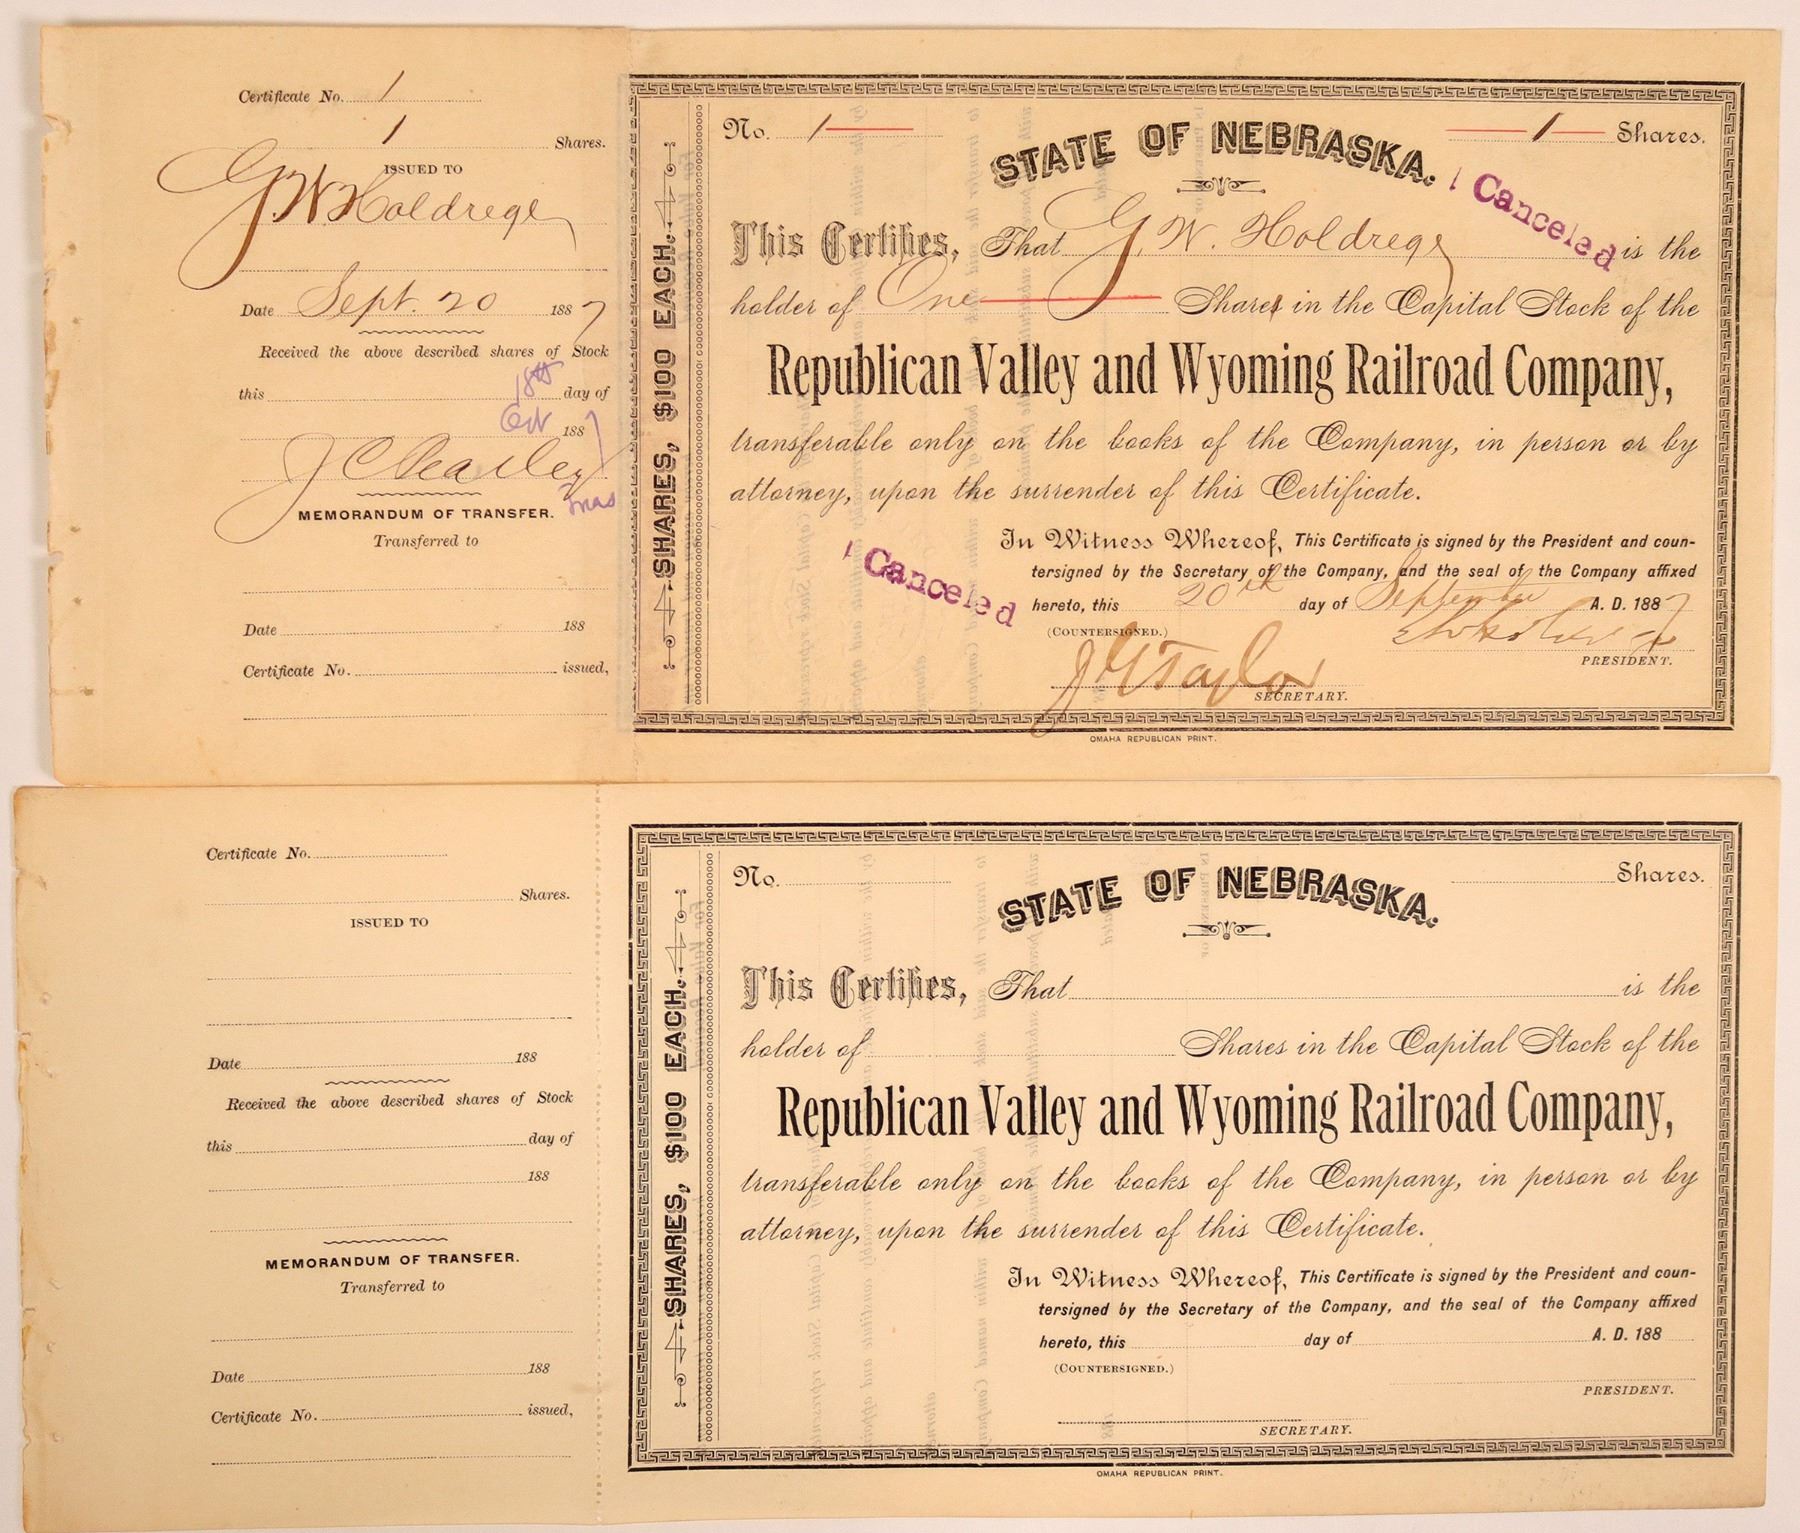 Certificate No. 1
1 Shares.
ISSUED TO
G. W. Holdrege
Date Sept. 20 1887
Received the above described shares of Stock
this 18th day of
Oct 1887
J C Peasley
Treas
MEMORANDUM OF TRANSFER.
Transferred to
Date 188
Certificate No. issued,
SHARES, $100 EACH.
No. 1
1 Shares.
STATE OF NEBRASKA.
Canceled
This Certifies, That G. W. Holdrege is the
holder of One Shares in the Capital Stock of the
Republican Valley and Wyoming Railroad Company,
transferable only on the books of the Company, in person or by
attorney, upon the surrender of this Certificate.
In Witness Whereof, This Certificate is signed by the President and coun-
tersigned by the Secretary of the Company, and the seal of the Company affixed
hereto, this 20th day of September A. D. 1887
Canceled
(COUNTERSIGNED.)
PRESIDENT.
J G Taylor
SECRETARY.
OMAHA REPUBLICAN PRINT.
Certificate No.
Shares.
ISSUED TO
Date 188
Received the above described shares of Stock
this day of
188
MEMORANDUM OF TRANSFER.
Transferred to
Date 188
Certificate No. issued,
SHARES, $100 EACH.
No.
Shares.
STATE OF NEBRASKA.
This Certifies, That is the
holder of Shares in the Capital Stock of the
Republican Valley and Wyoming Railroad Company,
transferable only on the books of the Company, in person or by
attorney, upon the surrender of this Certificate.
In Witness Whereof, This Certificate is signed by the President and coun-
tersigned by the Secretary of the Company, and the seal of the Company affixed
hereto, this day of A. D. 188
(COUNTERSIGNED.)
PRESIDENT.
SECRETARY.
OMAHA REPUBLICAN PRINT.